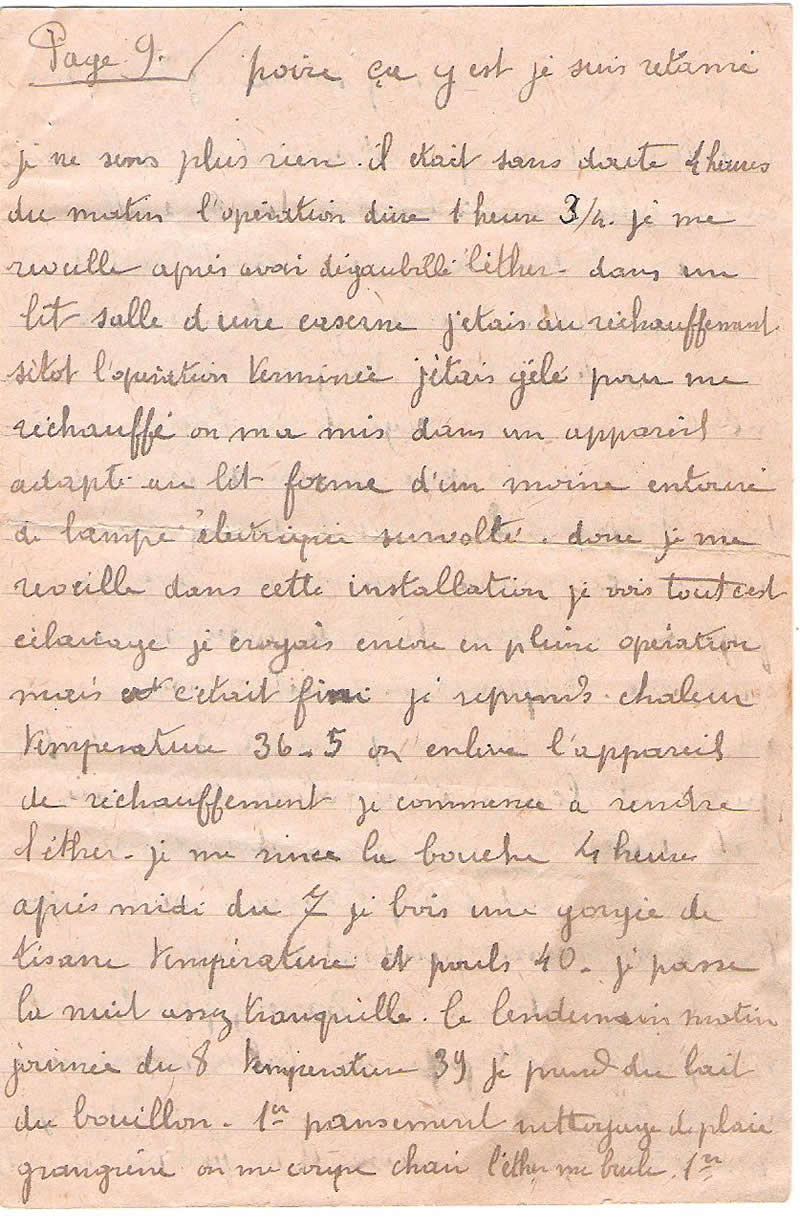 Page 9.
poire ça y est je suis retamé
je ne sens plus rien. il etait sans doute 4 heures
du matin l'opération dure 1 heure 3/4. je me
reveille après avoir dégaubillé l'éther. dans un
lit salle d'une caserne j'etais au réchauffement
sitot l'opération terminée j'étais gélé pour me
réchauffé on ma mis dans un appareil
adapté au lit forme d'un moine entouré
de lampe électrique survolté. donc je me
reveille dans cette installation je vois tout cest
éclairage je croyais encore en pleine opération
mais c'était fini je reprends chaleur
température 36-5 on enlève l'appareil
de réchauffement je commence à rendre
l'éther. je me rince la bouche 4 heures
après midi du 7 je bois une gorgée de
tisane température et pouls 40. je passe
la nuit assez tranquille. le lendemain matin
journée du 8 température 39 je prend du lait
du bouillon. 1er pansement nettoyage de plaie
grangrène on me coupe chair l'éther me brule. 1er